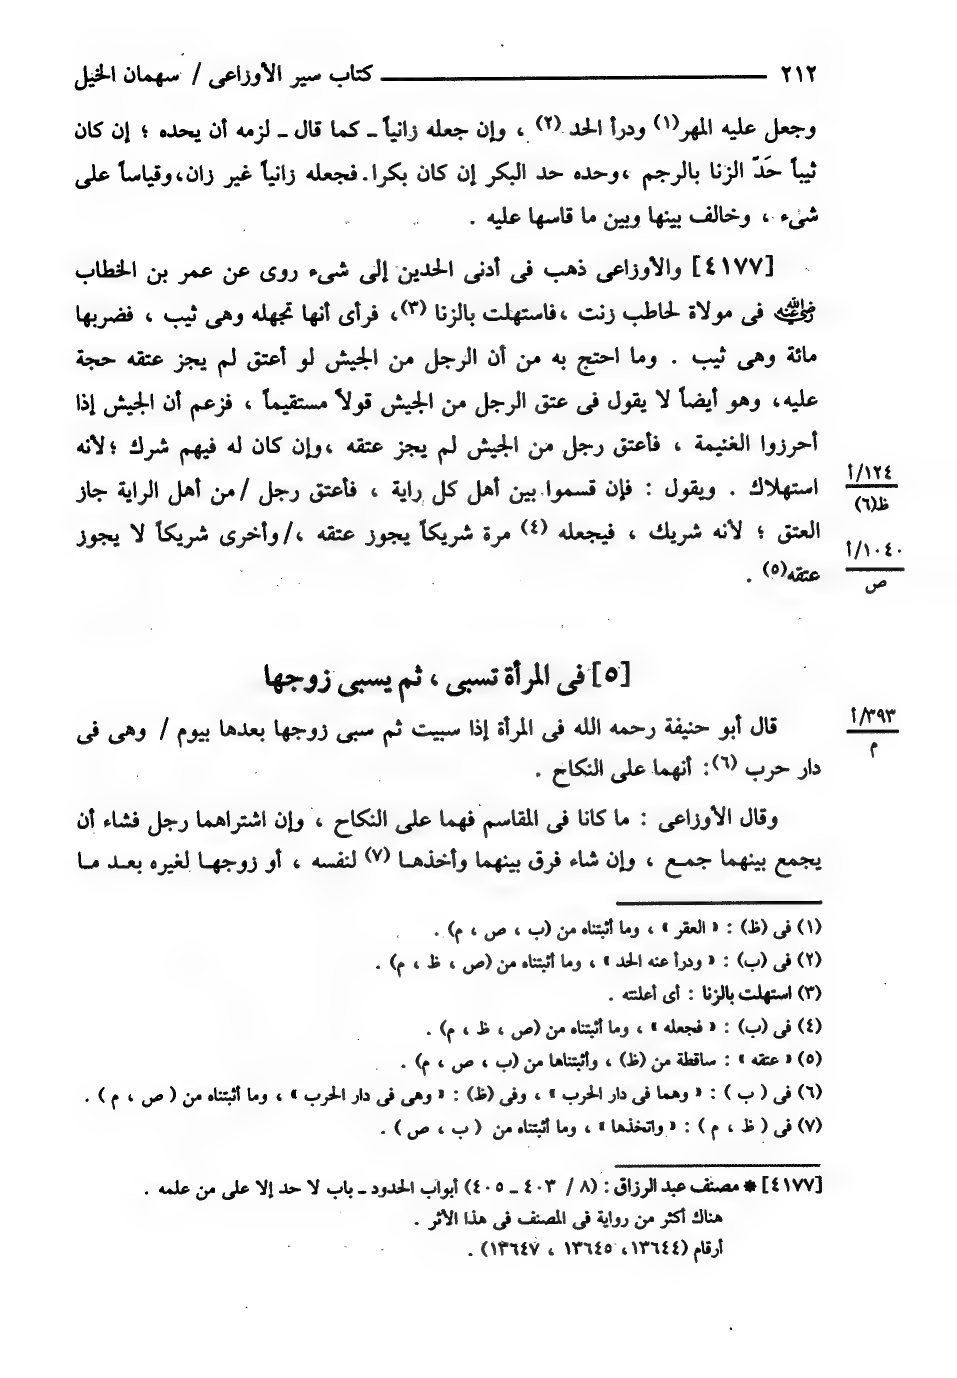 ٢١٢ كتاب سير الأوزاعى / سهمان الخيل
وجعل عليه المهر(١) ودرأ الحد (٢) ، وإن جعله زانياً ـ كما قال ـ لزمه أن يحده ؛ إن كان
ثيباً حَدّ الزنا بالرجم ،وحده حد البكر إن كان بكرا.فجعله زانياً غير زان،وقياساً على
شىء ، وخالف بينها وبين ما قاسها عليه .
[٤١٧٧] والأوزاعى ذهب فى أدنى الحدين إلى شىء روى عن عمر بن الخطاب
رضي الله عنه فى مولاة لحاطب زنت ،فاستهلت بالزنا (٣)، فرأى أنها تجهله وهى ثيب ، فضربها
مائة وهى ثيب . وما احتج به من أن الرجل من الجيش لو أعتق لم يجز عتقه حجة
عليه، وهو أيضاً لا يقول فى عتق الرجل من الجيش قولاً مستقيماً ، فزعم أن الجيش إذا
أحرزوا الغنيمة ، فأعتق رجل من الجيش لم يجز عتقه ،وإن كان له فيهم شرك ؛لأنه
استهلاك . ويقول : فإن قسموا بين أهل كل راية ، فأعتق رجل /من أهل الراية جاز
١٢٤/أ
ظ(٦)
العتق ؛ لأنه شريك ، فيجعله (٤) مرة شريكاً يجوز عتقه ،/وأخرى شريكاً لا يجوز
١٠٤٠/أ
ص
عتقه(٥) .
[٥] فى المرأة تسبى ، ثم يسبى زوجها
قال أبو حنيفة رحمه الله فى المرأة إذا سبيت ثم سبى زوجها بعدها بيوم / وهى فى
٣٩٣/أ
م
دار حرب (٦): أنهما على النكاح .
وقال الأوزاعى : ما كانا فى المقاسم فهما على النكاح ، وإن اشتراهما رجل فشاء أن
يجمع بينهما جمع ، وإن شاء فرق بينهما وأخذها (٧) لنفسه ، أو زوجها لغيره بعد ما
(١) فى (ظ) : « العقر » ، وما أثبتناه من (ب ، ص ، م) .
(٢) فى (ب) : « ودرأ عنه الحد » ، وما أثبتناه من (ص ، ظ ، م) .
(٣) استهلت بالزنا : أى أعلنته .
(٤) فى (ب) : « فجعله » ، وما أثبتناه من (ص ، ظ ، م) .
(٥) « عتقه » : ساقطة من (ظ) ، وأثبتناها من (ب ، ص ، م) .
(٦) فى ( ب ) : « وهما فى دار الحرب » ، وفى (ظ) : « وهى فى دار الحرب » ، وما أثبتناه من ( ص ، م ) .
(٧) فى ( ظ ، م ) : « واتخذها » ، وما أثبتناه من ( ب ، ص ) .
[٤١٧٧] * مصنف عبد الرزاق : (٨ / ٤٠٣ ـ ٤٠٥) أبواب الحدود ـ باب لا حد إلا على من علمه .
هناك أكثر من رواية فى المصنف فى هذا الأثر .
أرقام (١٣٦٤٤، ١٣٦٤٥ ، ١٣٦٤٧) .